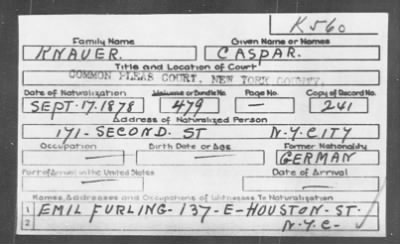 K560
Family Name Given Name or Names
KNAUER. CASPAR.
Title and Location of Court
COMMON PLEAS COURT, NEW YORK COUNTY.
Date of Naturalization Volume or Bundle No. Page No. Copy of Record No.
SEPT. 17. 1878 479 — 241
Address of Naturalized Person
171 - SECOND. ST N.Y. CITY
Occupation Birth Date or Age Former Nationality
— — GERMAN
Port of Arrival in the United States Date of Arrival
— —
Names, Addresses and Occupations of Witnesses To Naturalization
1 EMIL FURLING - 137 - E - HOUSTON - ST.
2 N.Y.C -